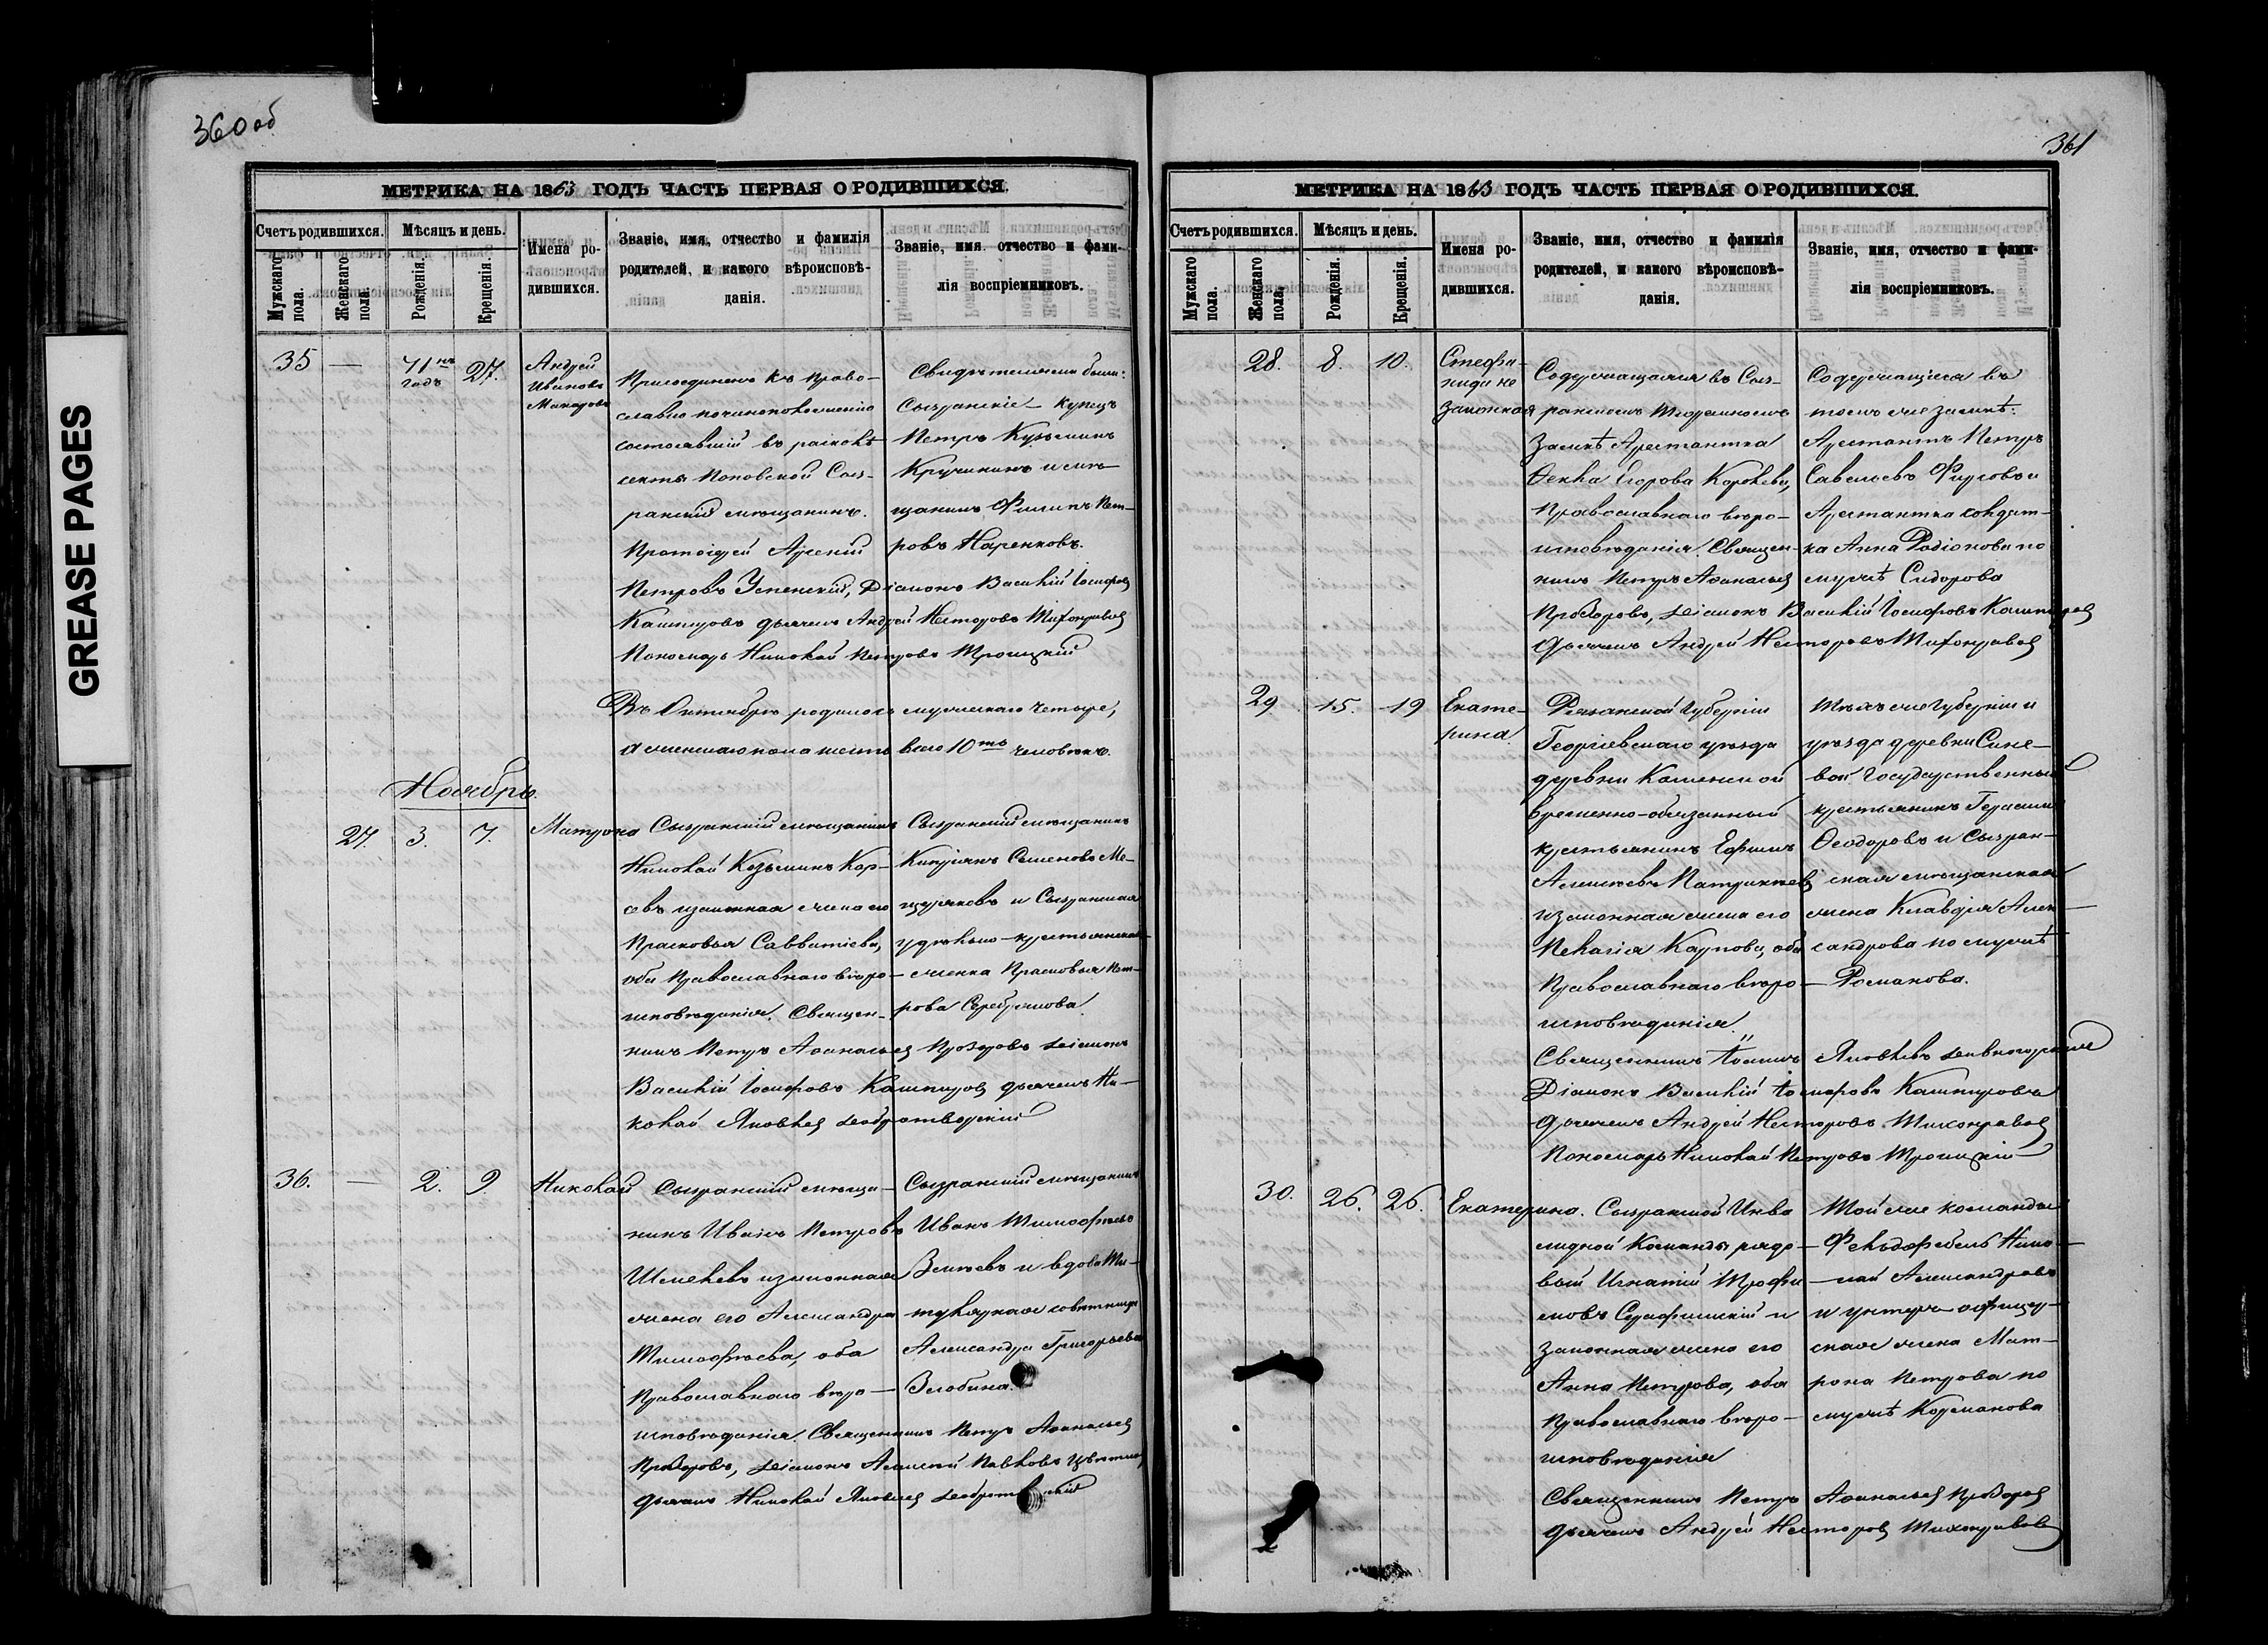 360 об
МЕТРИКА НА 1863 ГОДЪ ЧАСТЬ ПЕРВАЯ О РОДИВШИХСЯ.
Счетъ родившихся.
Мужскаго пола.
Женскаго пола.
Мѣсяцъ и день.
Рожденія.
Крещенія.
Имена ро-
дившихся.
Званіе, имя, отчество и фамилія
родителей, и какого вѣроисповѣ-
данія.
Званіе, имя отчество и фами-
лія воспріемниковъ.
35 — 71 годъ 27. Андрей
Ивановъ
Макаровъ
Присоединенъ къ право-
славію
состоявшій въ расколѣ
секты Поповской Сыз-
ранскій мѣщанинъ.
Протоіерей Арсеній
Петровъ Успенскій, Діаконъ Василій Іосифовъ
Кашпуровъ дьячекъ Андрей Несторовъ Тихонравовъ
Пономарь Николай Петровъ Троицкій
Свидѣтелями были:
Сызранскіе — купецъ
Петръ Кузьминъ
Кручининъ и мѣ-
щанинъ Филипъ Пет-
ровъ Наренковъ.
Въ Октябрѣ родилось мужскаго четыре,
а женскаго пола шесть всего 10ть человѣкъ.
Ноябрь.
27. 3. 7. Матрона
Сызранскій мѣщанинъ
Николай Козьминъ Кар-
евъ и законная жена его
Прасковья Савватіева,
оба Православнаго вѣро-
исповѣданія. Священ-
никъ Петръ Афанасьевъ Прозоровъ діаконъ
Василій Іосифовъ Кашпуровъ дьячекъ Ни-
колай Яковлевъ Добротворскій
Сызранскій мѣщанинъ
Кипріянъ Семеновъ Ме-
щеряковъ и Сызранская
удѣльно-крестьянская
женка Прасковья Пет-
рова Серебрякова.
36. — 2. 9 Николай
Сызранскій мѣща-
нинъ Иванъ Петровъ
Шмелевъ и законная
жена его Александра
Тимофѣева, оба
Православнаго вѣро-
исповѣданія. Священникъ Петръ Афанасьевъ
Прозоровъ, діаконъ Алексѣй Павловъ
дьячекъ Николай Яковлевъ Добротворскій
Сызранскій мѣщанинъ
Иванъ Тимофѣевъ
и вдова Ти-
тулярная совѣтница
Александра Григорьева
Злобина.
361
МЕТРИКА НА 1863 ГОДЪ ЧАСТЬ ПЕРВАЯ О РОДИВШИХСЯ.
Счетъ родившихся.
Мужскаго пола.
Женскаго пола.
Мѣсяцъ и день.
Рожденія.
Крещенія.
Имена ро-
дившихся.
Званіе, имя, отчество и фамилія
родителей, и какого вѣроисповѣ-
данія.
Званіе, имя, отчество и фами-
лія воспріемниковъ.
28. 8. 10. Стефа-
нида не
законная
Содержащаяся въ Сыз-
ранскомъ Тюремномъ
замкѣ Арестантка
Фекла Егорова Королева,
Православнаго вѣро-
исповѣданія. Священ-
никъ Петръ Афанасьевъ
Прозоровъ, діаконъ Василій Іосифовъ Кашпуровъ
дьячекъ Андрей Несторовъ Тихонравовъ
Содержащіеся въ
томъ же замкѣ:
Арестантъ Петръ
Савельевъ Фирсовъ и
Арестантка солдат-
ка Анна Родіонова по
мужѣ Сидорова
29 15. 19 Екате-
рина.
Рязанской Губерніи
Георгіевскаго уѣзда
деревни Каменской
временно-обязанный
крестьянинъ Ефимъ
Алексѣевъ Патрикѣевъ
и законная жена его
Пелагія Карпова, оба
Православнаго вѣро-
исповѣданія.
Священникъ Іоаннъ Яковлевъ
Діаконъ Василій Іосифовъ Кашпуровъ
дьячекъ Андрей Несторовъ Тихонравовъ
Пономарь Николай Петровъ Троицкій
Тѣхъ же Губерніи и
уѣзда деревни Сине-
вой Государственный
крестьянинъ Герасимъ
Ѳеодоровъ и Сызран-
ская мѣщанская
жена Клавдія Алек-
сандрова по мужѣ
Романова.
30. 26. 26. Екатерина.
Сызранской Инва-
лидной Команды рядо-
вый Игнатій Трофи-
мовъ Серафимскій и
законная жена его
Анна Петрова, оба
Православнаго вѣро-
исповѣданія
Священникъ Петръ Афанасьевъ Прозоровъ
дьячекъ Андрей Несторовъ Тихонравовъ
Той же команды
Фельдфебель Нико-
лай Александровъ
и унтеръ-офицер-
ская жена Мат-
рона Петрова по
мужѣ Корманова
GREASE PAGES